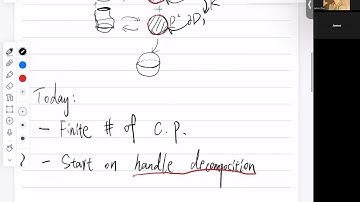 +
Today:
- Finite # of C.P.
- Start on handle decomposition